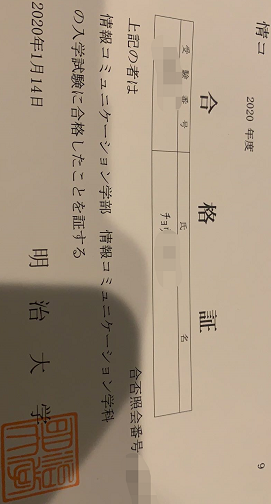 情コ
2020 年度
9
合格証
受験番号
氏名
チヨリ
合否照会番号
上記の者は
情報コミュニケーション学部 情報コミュニケーション学科
の入学試験に合格したことを証する
2020年1月14日
明治大学